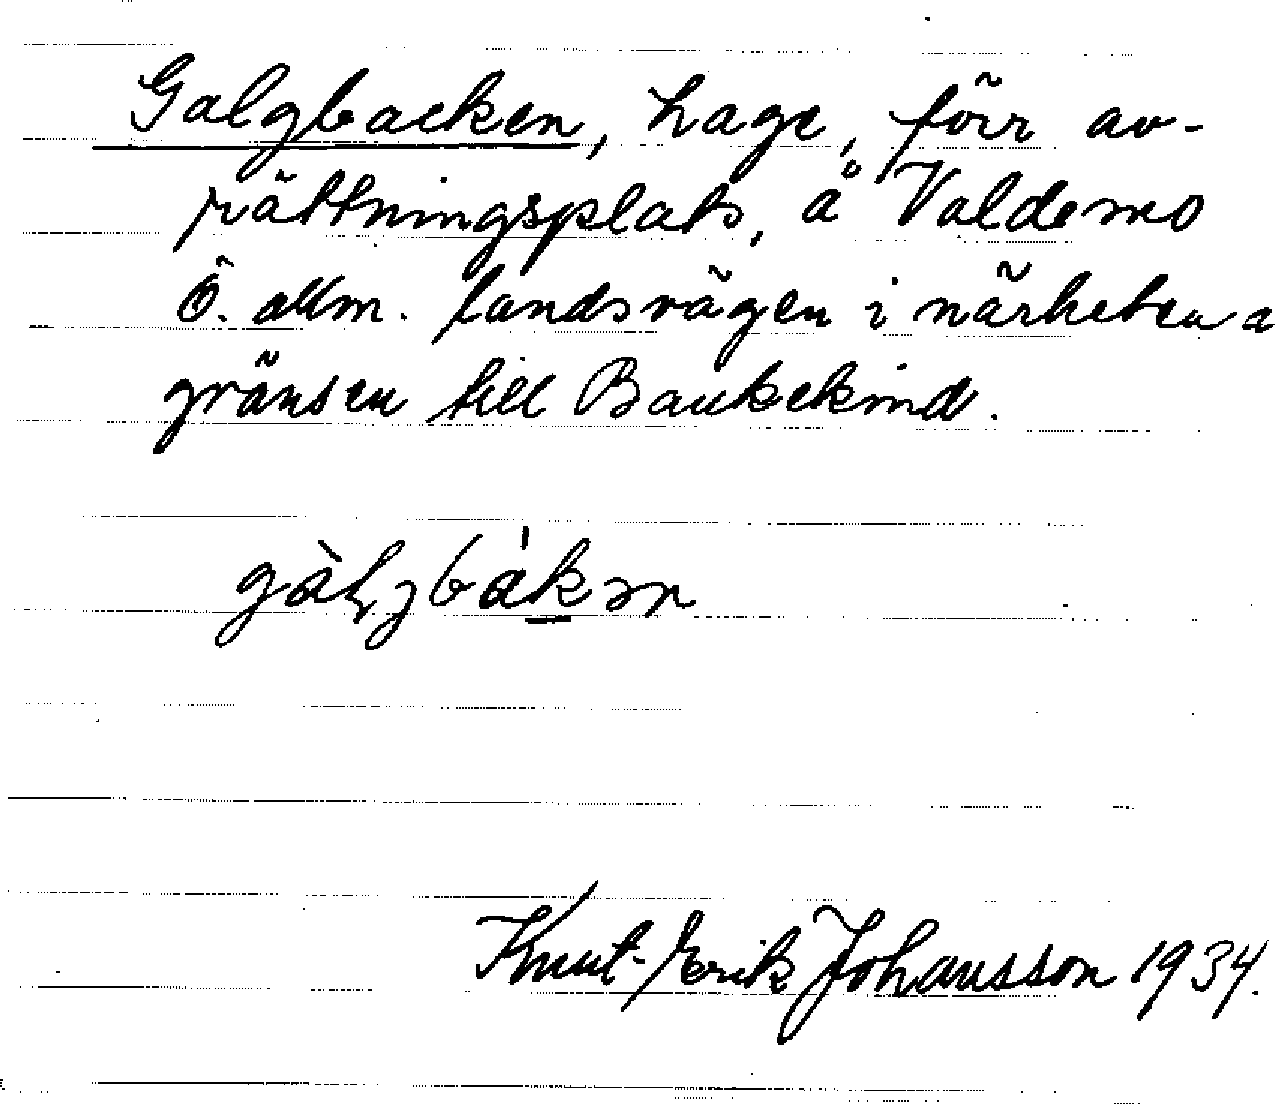 Galgbacken, hage, förr av-
rättningsplats, å Valdemo
Ö. allm. landsvägen i närheten a
gränsen till Bankekind.
gàlgbákən
Knut-Erik Johansson 1934.